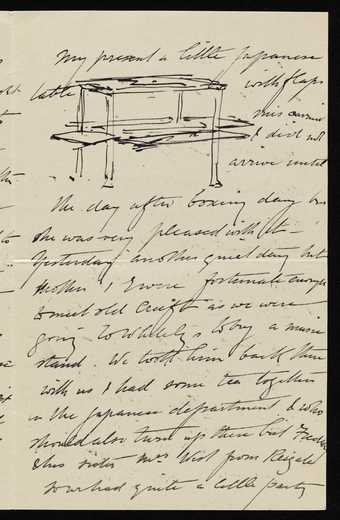 My present a little Japanese
table with flaps
this
& did not
arrive until
the day after boxing day but
she was very pleased with it -
Yesterday another quiet day but
Mother & I were fortunate enough
to meet old Craft as we were
going to Whitelys to buy a music
stand. We took him back then
with us & had some tea together
in the Japanese department. & who
should also turn up there but
& his sister Mrs West from Reigate
so we had quite a little party